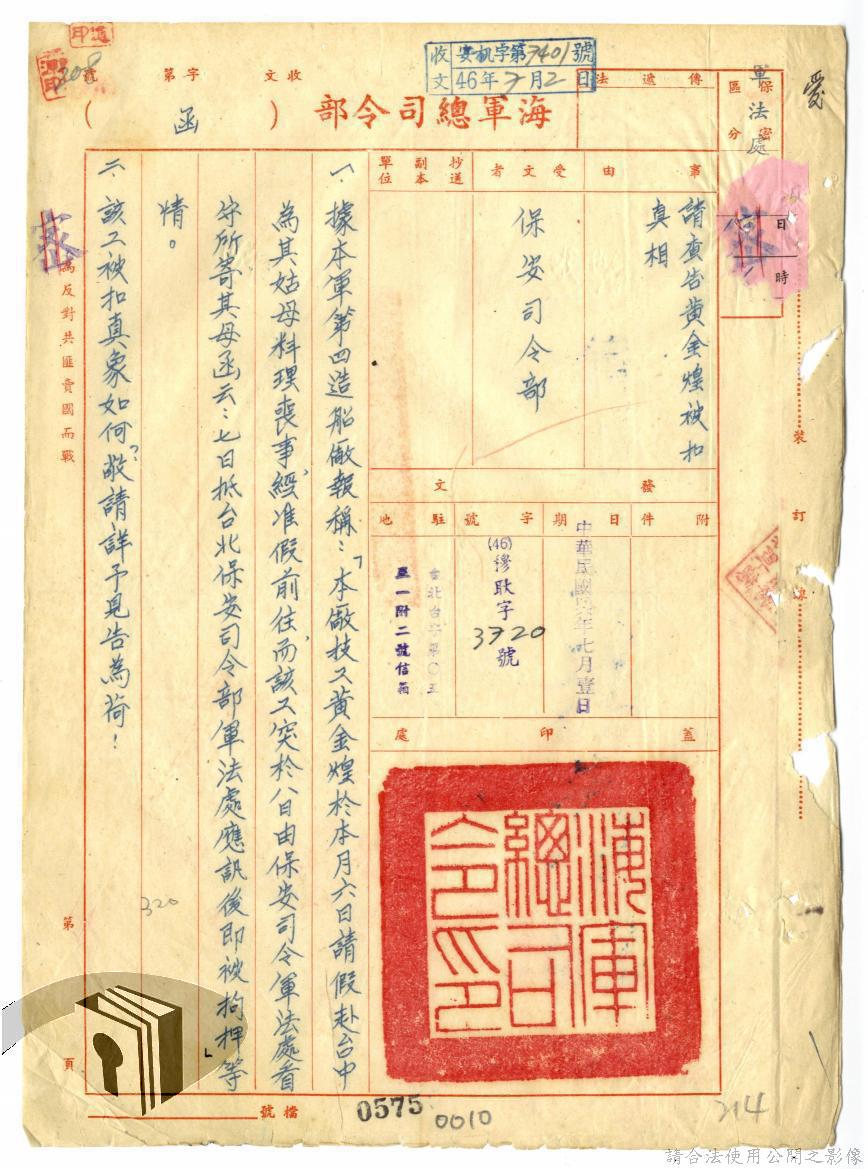 收文 安機字第7401號
46年7月2日
308
收文 字第 號
海軍總司令部（函）
傳遞法
保密區分
軍法處
密
日
時
事由
請查告黃金煌被扣
真相
受文者
保安司令部
抄送副本單位
發文
附件
日期
中華民國四六年七月壹日
字號
(46)穆耿字
3720號
駐地
台北台字第〇五
至一附二號信箱
蓋印處
海軍總司令印
一、據本軍第四造船廠報稱：「本廠技工黃金煌於本月六日請假赴台中
為其姑母料理喪事，經准假前往，而該工突於八日由保安司令軍法處看
守所寄其母函云：七日抵台北保安司令部軍法處應訊後即被拘押等
情。」
二、該工被扣真象如何？敬請詳予見告為荷！
為反對共匪賣國而戰
密
裝
訂
線
第
頁
320
檔號
0575
0010
214
請合法使用公開之影像